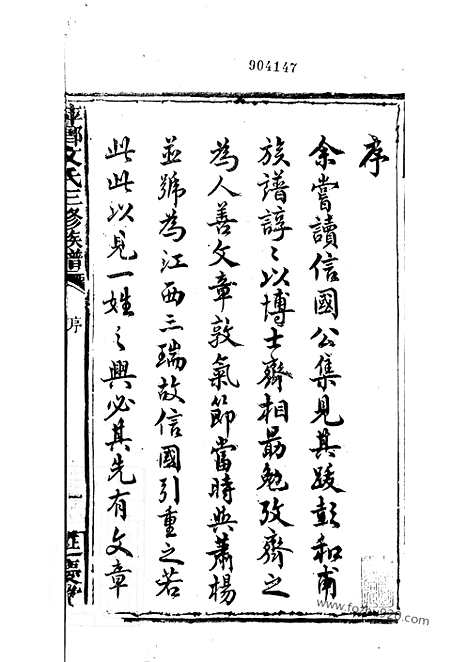 904147
序
余嘗讀信國公集見其跋彭和甫
族譜諄〻以博士齊相勗勉攷齊之
為人善文章敦氣節當時與蕭楊
並號為江西三瑞故信國引重之若
此此以見一姓之興必其先有文章
萍鄉文氏三修族譜
序
一